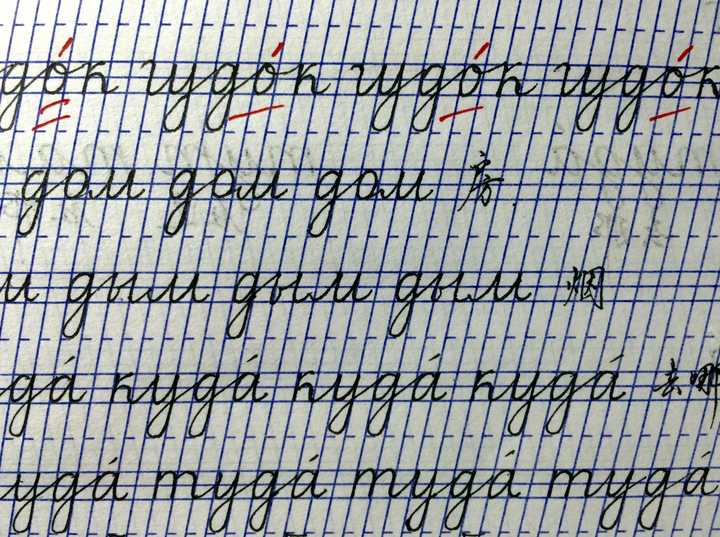 до́к гудо́к гудо́к гудо́к
дом дом дом 房
м дым дым дым 烟
да́ куда́ куда́ куда́ 去哪
уда́ туда́ туда́ туда́